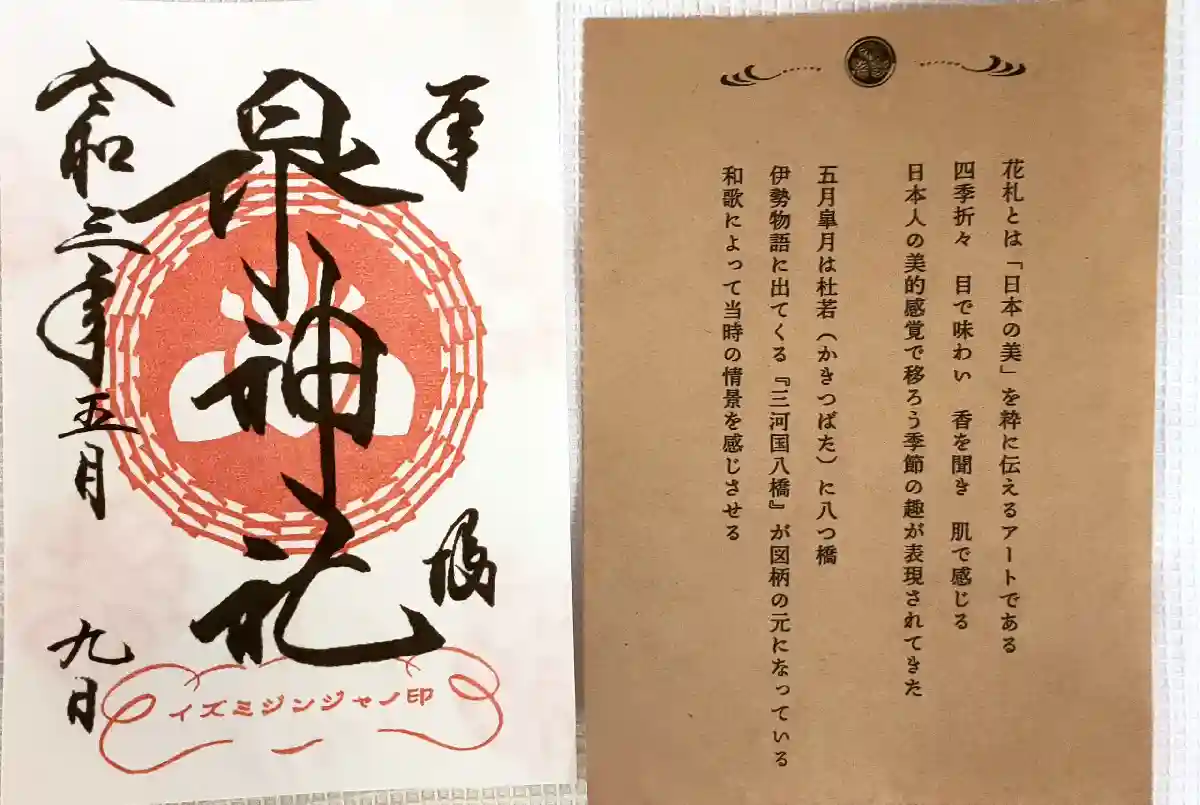 奉拝
泉神社
令和三年五月九日
イズミジンジャノ印
花札とは「日本の美」を粋に伝えるアートである
四季折々　目で味わい　香を聞き　肌で感じる
日本人の美的感覚で移ろう季節の趣が表現されてきた
五月皐月は杜若（かきつばた）に八つ橋
伊勢物語に出てくる『三河国八橋』が図柄の元になっている
和歌によって当時の情景を感じさせる